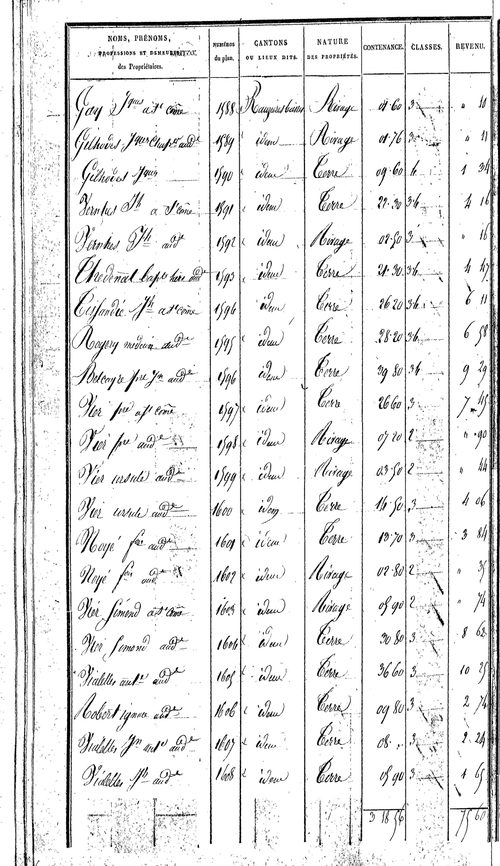 NOMS, PRÉNOMS, NUMÉROS CANTONS NATURE CONTENANCE. CLASSES. REVENU.
PROFESSIONS ET DEMEURES du plan. OU LIEUX DITS. DES PROPRIÉTÉS.
des Propriétaires.
Gay a St Côme 1588 Rivage 01 60 3 " 10
Gilhodes 1589 idem Rivage 01 76 3 " 11
Gilhodes 1590 idem Terre 09 60 4 1 34
a St Côme 1591 idem Terre 22 30 3 4 4 16
1592 idem Rivage 02 50 3 " 16
1593 idem Terre 21 30 3 4 4 47
a St Côme idem Terre 26 20 3 4 6 11
Rogery médecin aud 1595 idem Terre 28 20 3 4 6 58
aud 1596 idem Terre 39 80 3 4 9 29
Vier pre a St Côme 1597 idem Terre 26 60 3 7 45
Vier pre aud 1598 idem Rivage 07 20 2 " 90
Vier ursule aud 1599 idem Rivage 03 50 2 " 44
Vier ursule aud 1600 idem Terre 14 50 3 4 06
Noyé fois aud 1601 idem Terre 13 70 3 3 84
Noyé fois aud 1602 idem Rivage 02 80 2 " 35
Vier Simond a St Côme 1603 idem Rivage 05 90 2 " 74
Vier Simond aud 1604 idem Terre 30 80 3 8 62
Vialettes aud 1605 idem Terre 36 60 3 10 25
Robert ignace aud 1606 idem Terre 09 80 3 2 74
Vialettes aud 1607 idem Terre 08 " 3 2 24
Vialettes aud 1608 idem Terre 05 90 3 1 65
3 18 56 75 60